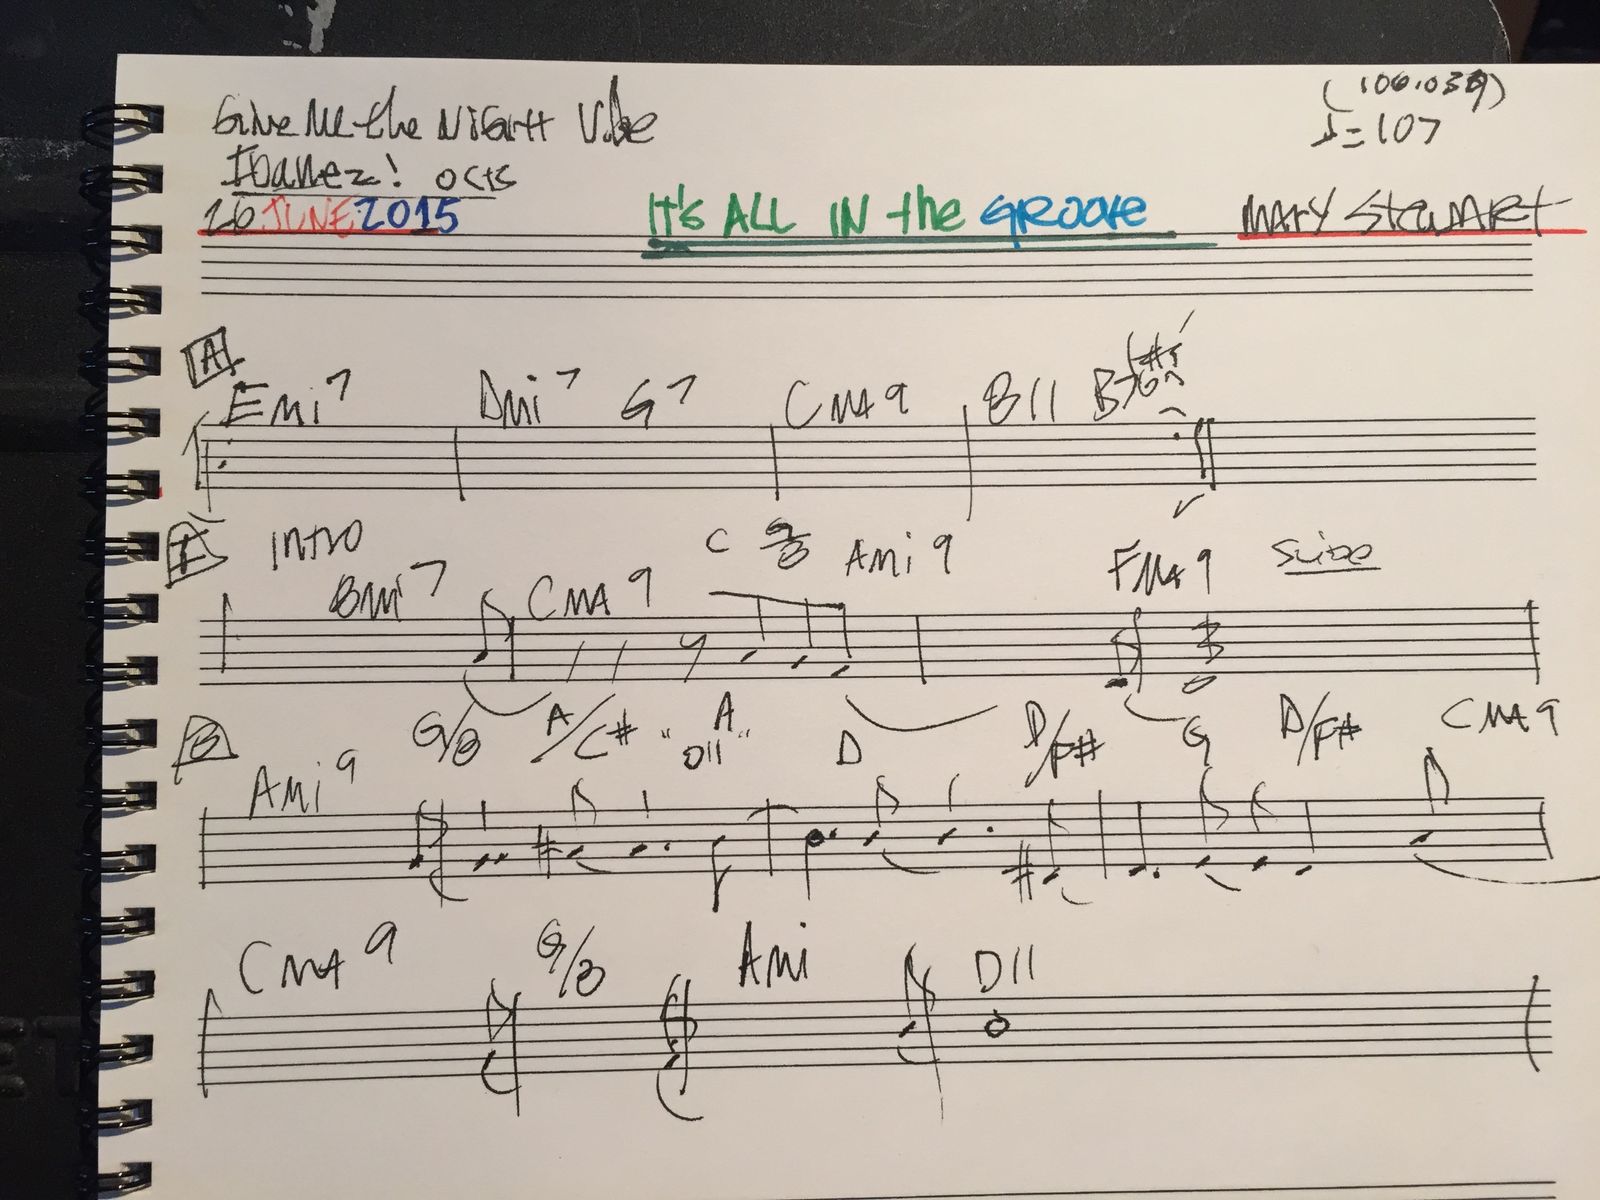 Give Me the Night Vibe
(106.039)
♩=107
Ibanez! octs
26 JUNE 2015 It's ALL IN the GROOVE MARY STEWART
A
Emi7 Dmi7 G7 CMA9 B11 B7
I INTRO
Bmi7 CMA9 C Ami9 FMA9 SLIDE
B
Ami9 G/B A/C# "A D11" D D/F# G D/F# CMA9
CMA9 G/B Ami D11